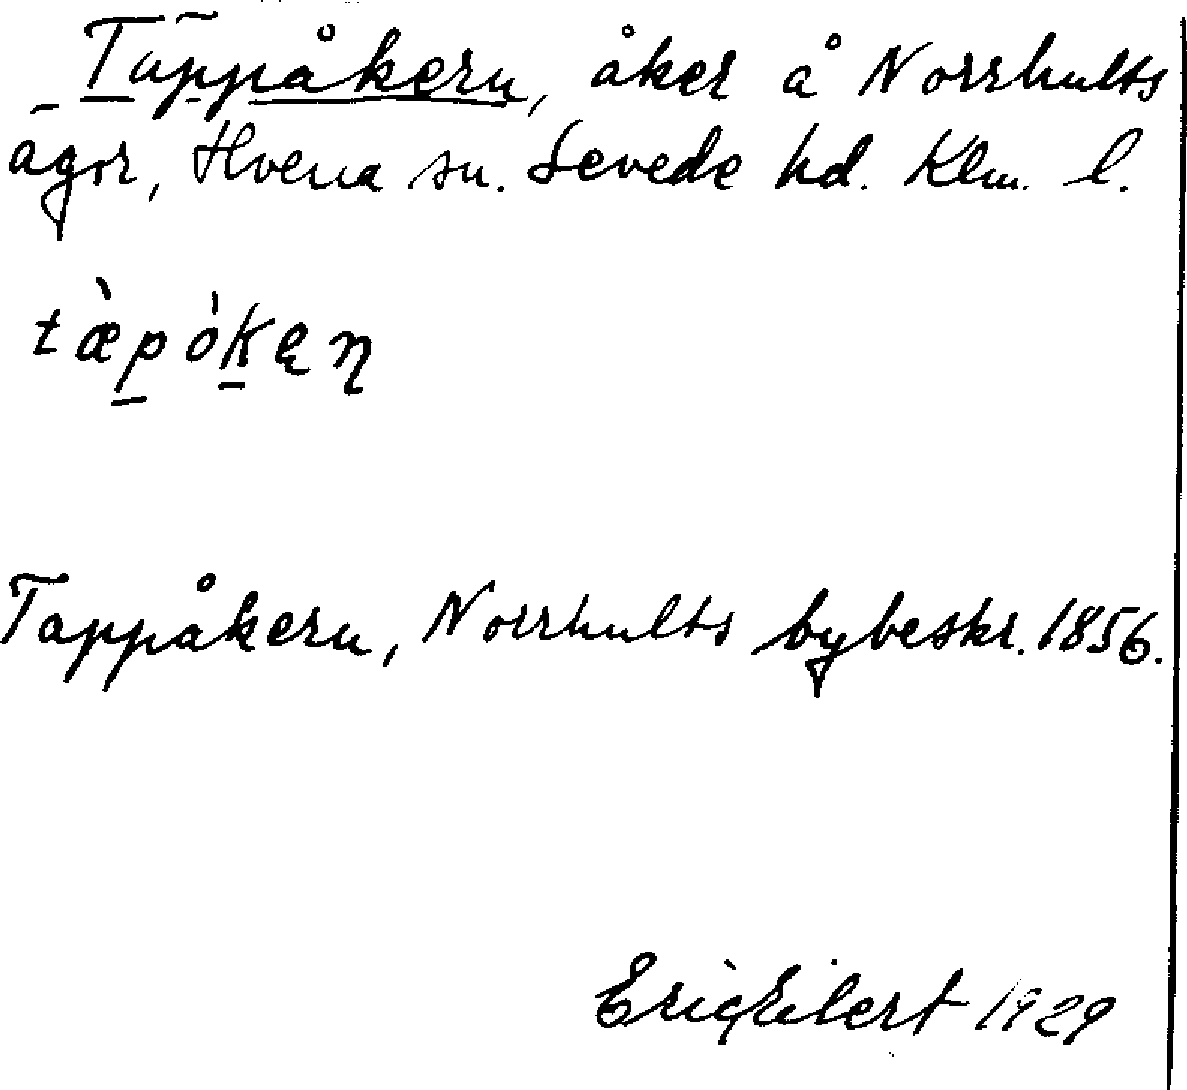 Täppåkern, åker å Norrhults
ägor, Hvena sn. Sevede hd. Klm. l.
tæ̀pòkęn
Tappåkern, Norrhults bybeskr. 1856.
Eric Eilert 1929